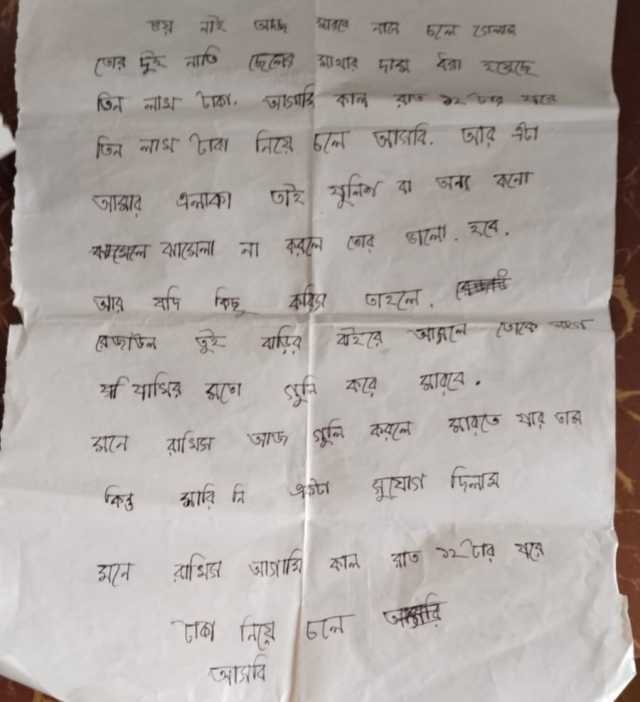 ভয় নাই আজ মারবো নাস চলে গেলাম
তোর দুই নাতি ছেলের মাথার দাম ধরা হয়েছে
তিন লাখ টাকা. আগামি কাল রাত ১২ টার পরে
তিন লাখ টাকা নিয়ে চলে আসবি. আর এটা
আমার এলাকা তাই পুলিশ বা অন্য কনো
ঝামেলা না করলে তোর ভালো. হবে.
আর যদি কিছু করিস তাহলে.
রেজাউল তুই বাড়ির বাইরে আসলে তোকে
পাখির মতো গুলি করে মারবো.
মনে রাখিস আজ গুলি করলে মারতে পার তাম
কিন্তু মারি নি একটা সুযোগ দিলাম
মনে রাখিস আগামি কাল রাত ১২ টার পরে
টাকা নিয়ে চলে
আসবি